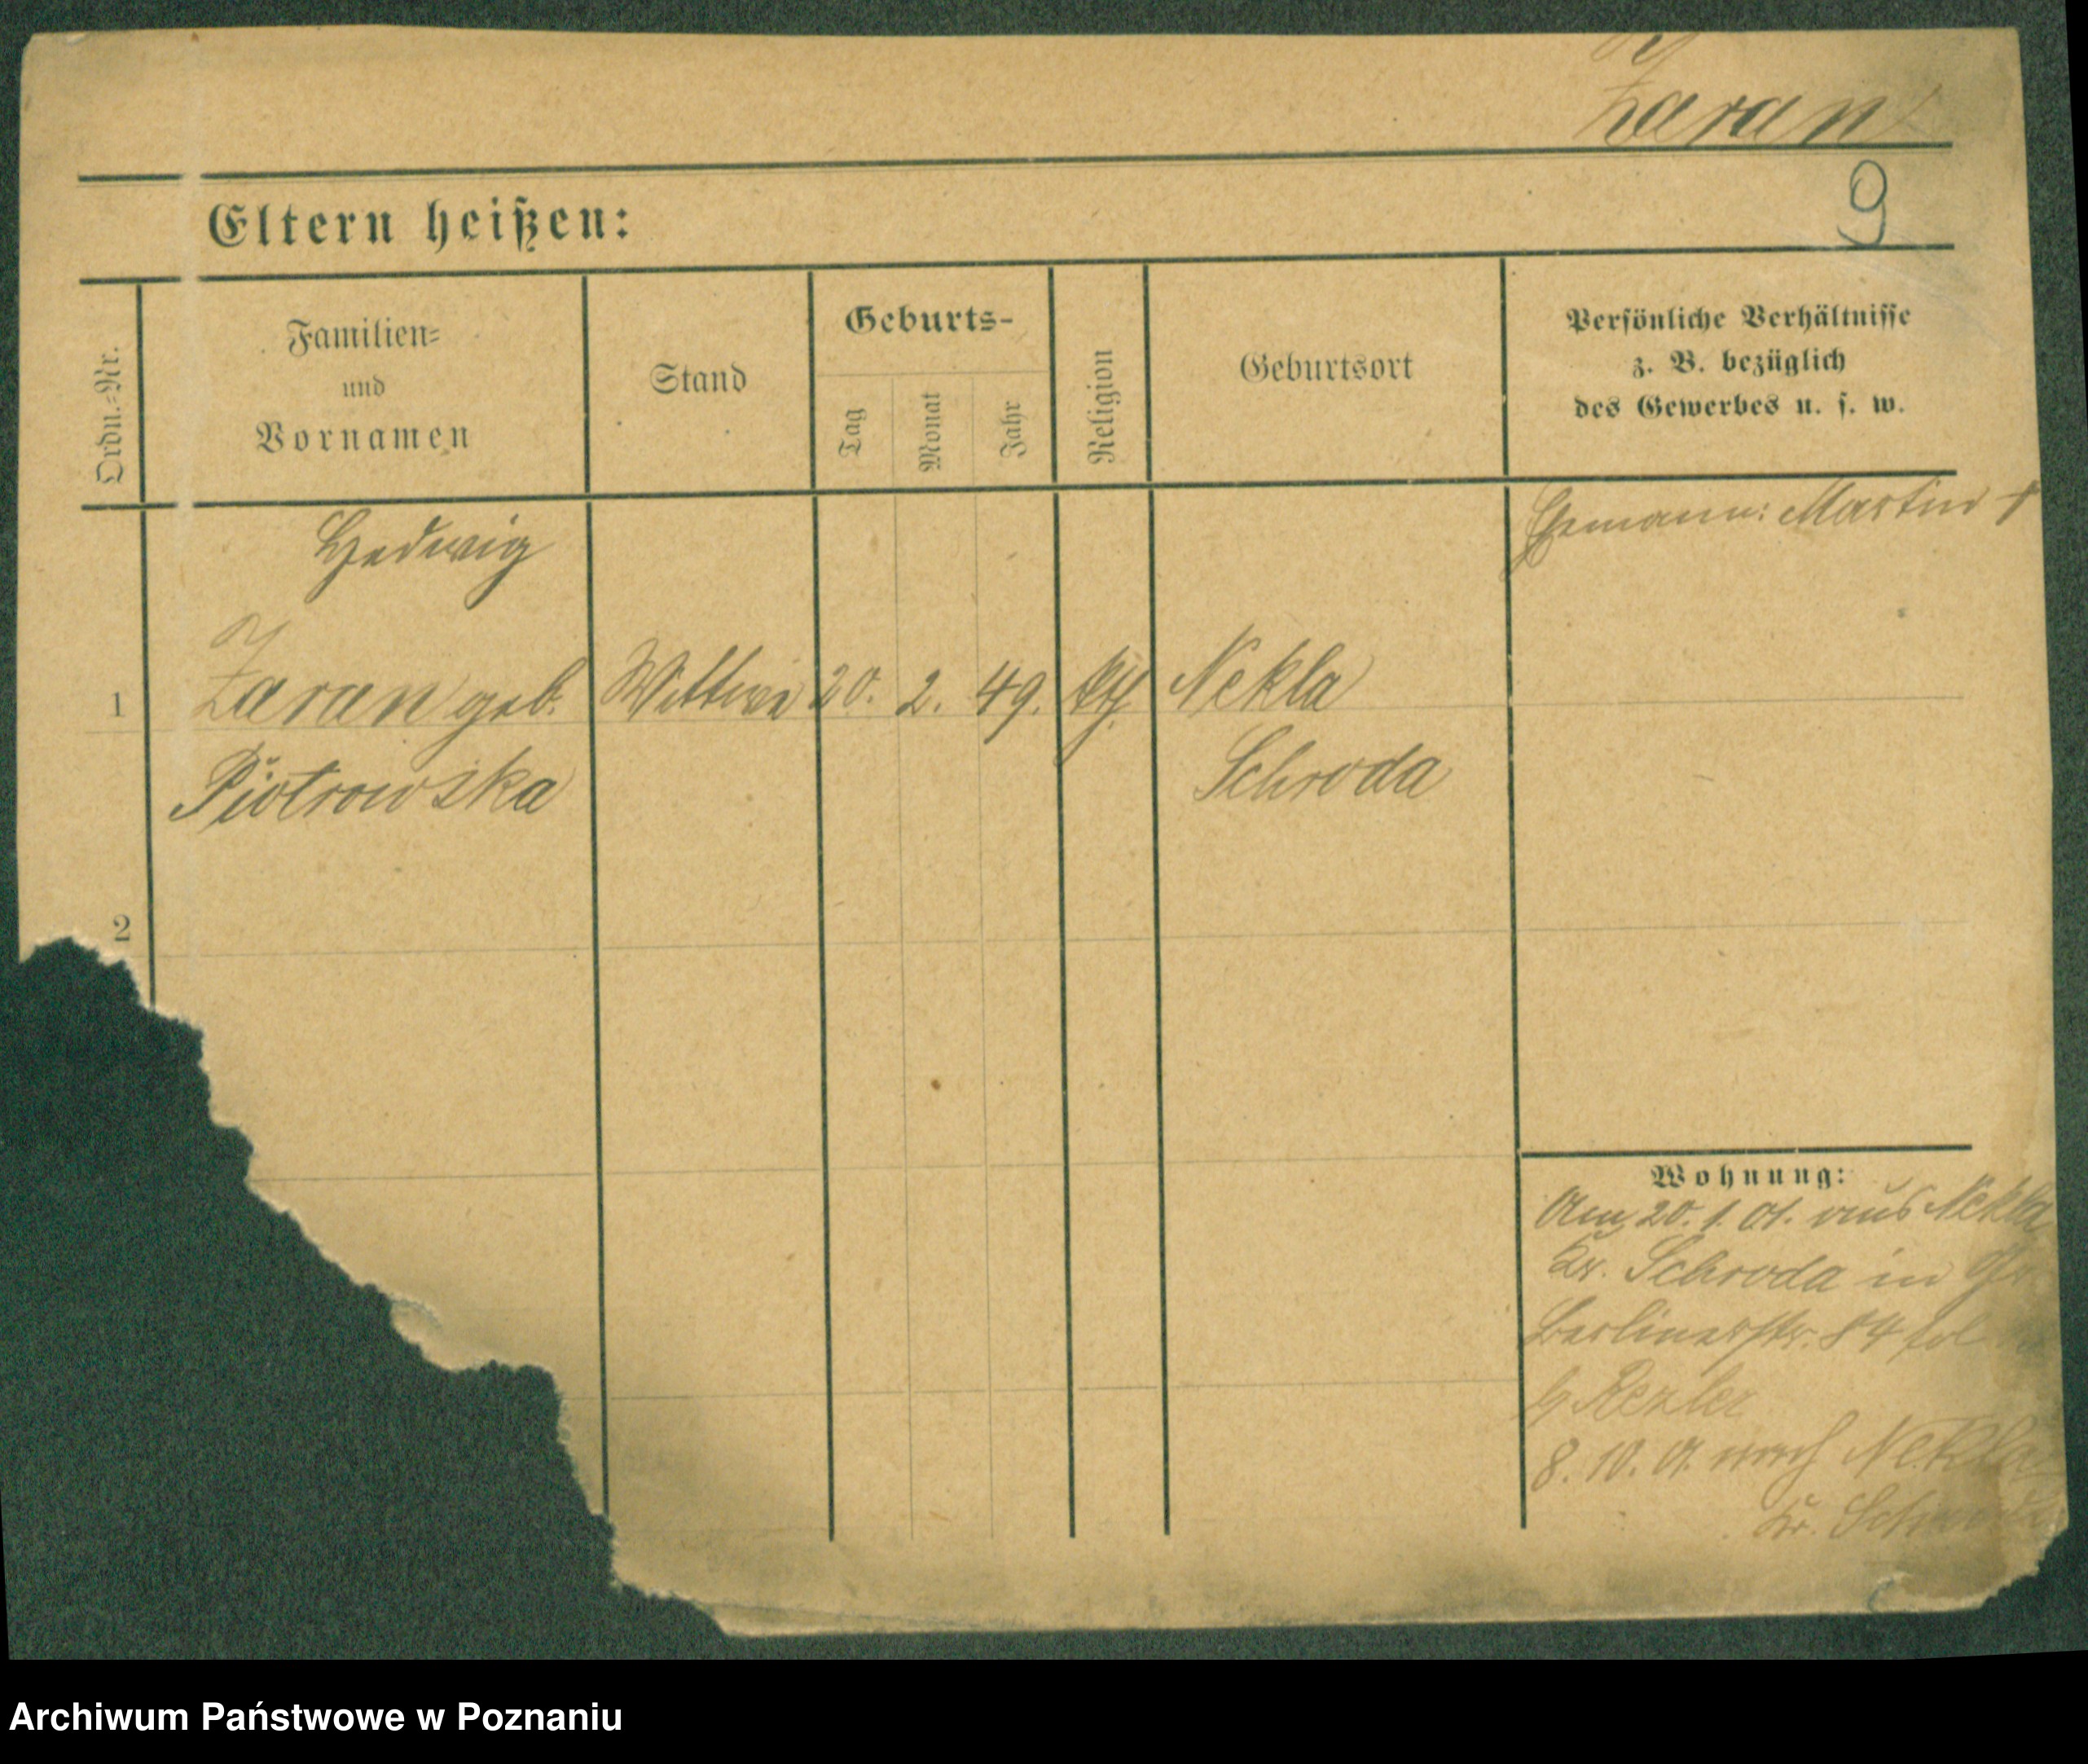 Zaran
9
Eltern heißen:
Ordn.-Nr.
Familien-
und
Vornamen
Stand
Geburts-
Tag
Monat
Jahr
Religion
Geburtsort
Persönliche Verhältnisse
z. B. bezüglich
des Gewerbes u. s. w.
Hedwig
Ehemann: Martin †
1
Zaran geb.
Wittwe
20.
2.
49.
kth.
Nekla
Piotrowska
Schroda
2
Wohnung:
Am 20. 1. 01. aus Nekla
Kr. Schroda in
Berlinerstr. 84
b/ Rezler
8. 10. 01. nach Nekla
Kr. Schroda
Archiwum Państwowe w Poznaniu